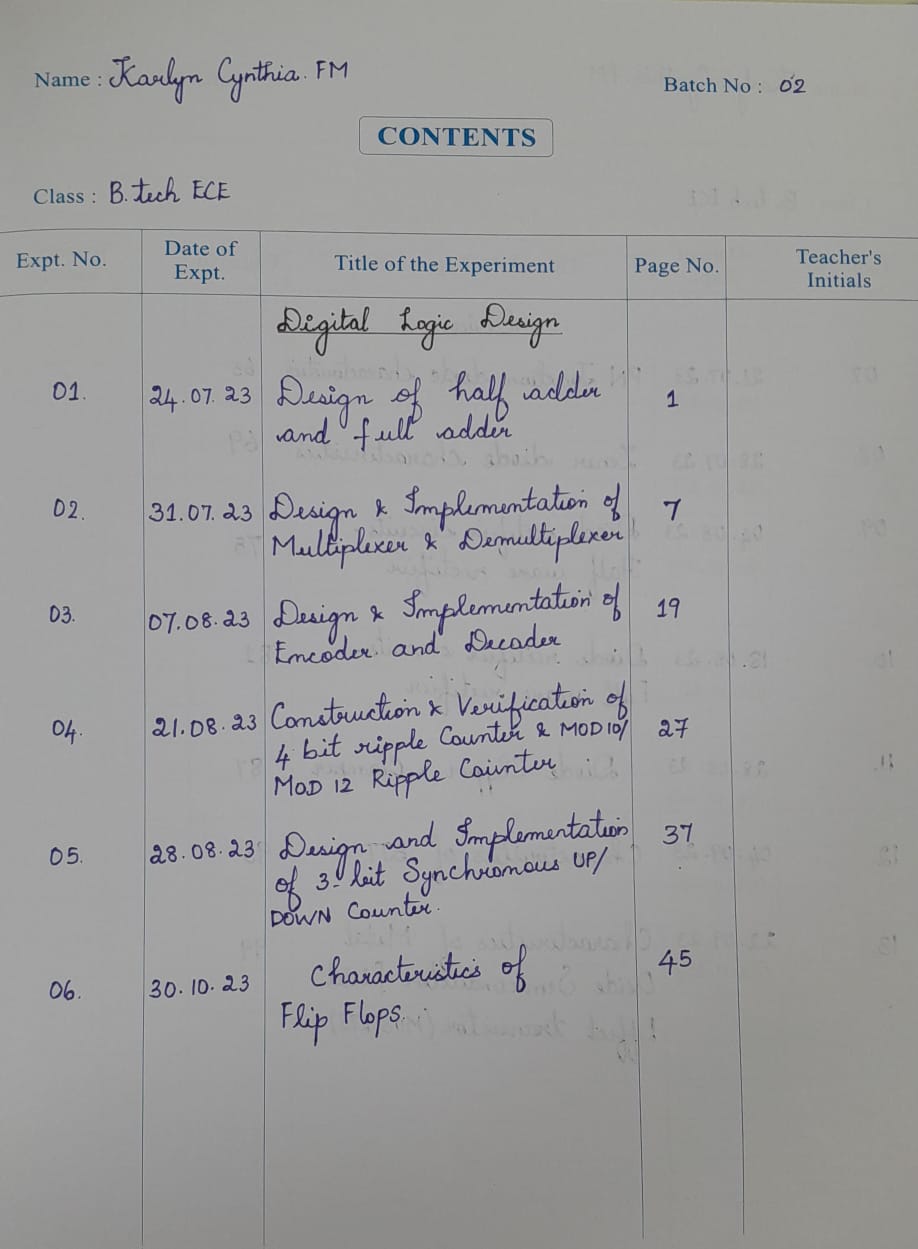 Name : Karlyn Cynthia. FM
Batch No : 02
CONTENTS
Class : B.tech ECE
Expt. No.
Date of
Expt.
Title of the Experiment
Page No.
Teacher's
Initials
Digital Logic Design
01. 24.07.23 Design of half adder 1
and full adder
02. 31.07.23 Design & Implementation of 7
Multiplexer & Demultiplexer
03. 07.08.23 Design & Implementation of 19
Encoder and Decoder
04. 21.08.23 Construction & Verification of 27
4 bit ripple Counter & MOD 10/
MOD 12 Ripple Counter
05. 28.08.23 Design and Implementation 37
of 3-bit Synchronous UP/
DOWN Counter.
06. 30.10.23 Characteristics of 45
Flip Flops.